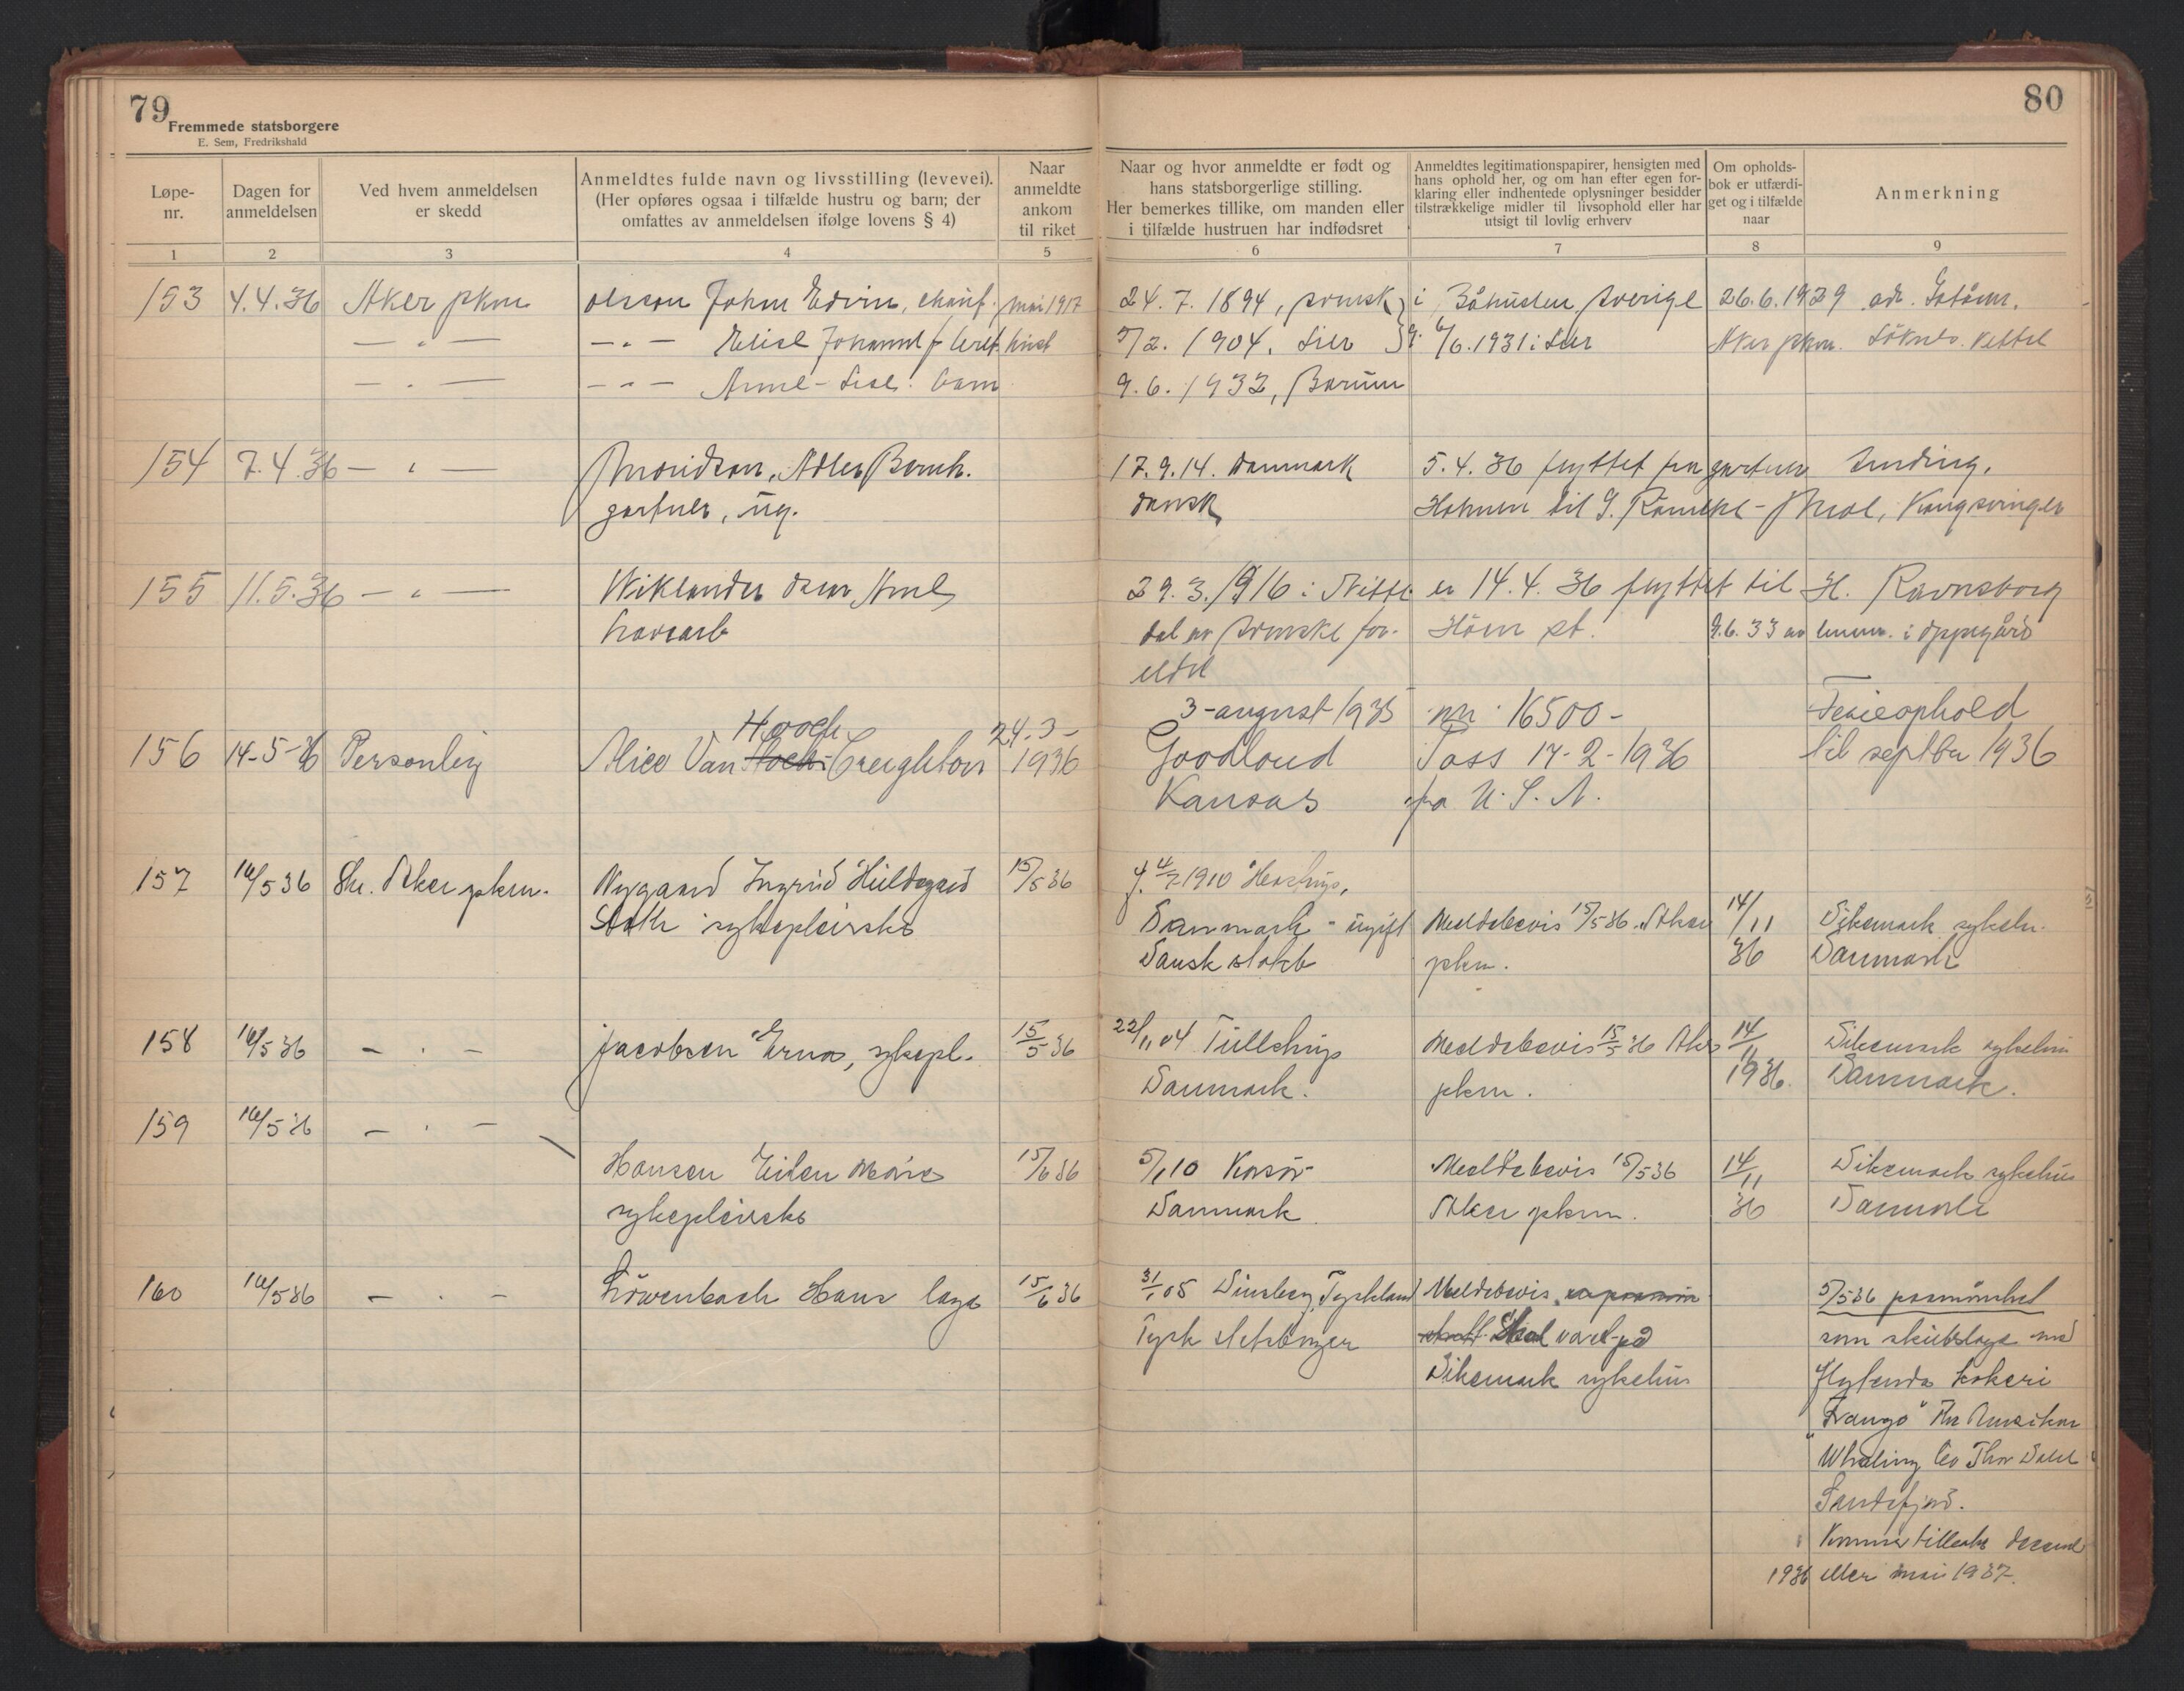 79
Fremmede statsborgere
E. Sem, Fredrikshald
80
Løpe-
nr.
Dagen for
anmeldelsen
Ved hvem anmeldelsen
er skedd
Anmeldtes fulde navn og livsstilling (levevei).
(Her opføres ogsaa i tilfælde hustru og barn; der
omfattes av anmeldelsen ifølge lovens § 4)
Naar
anmeldte
ankom
til riket
Naar og hvor anmeldte er født og
hans statsborgerlige stilling.
Her bemerkes tillike, om manden eller
i tilfælde hustruen har indfødsret
Anmeldtes legitimationspapirer, hensigten med
hans ophold her, og om han efter egen for-
klaring eller indhentede oplysninger besidder
tilstrækkelige midler til livsophold eller har
utsigt til lovlig erhverv
Om opholds-
bok er utfærdi-
get og i tilfælde
naar
Anmerkning
1 2 3 4 5 6 7 8 9
153 4.4.36 Aker pkm Olsson Johan Edvin, chauf. mai 1917 24.7.1894, svensk i Båhuslen Sverige 26.6.1929
— " — — " — Elise f. hust 5/2. 1904. Lier g. 6/6.1931 i Lier Aker pkm.
— " — — " — Anne-Lise: barn 9.6.1932, Bærum
154 7.4.36 — " — Adler Bernh. 17.9.14. Danmark 5.4.36 flyttet fra gartner
gartner, ug. dansk Holmen til Kongsvinger
155 11.5.36 — " — Wiklander 29.3.1916 i Nitte- er 14.4.36 flyttet til H. Ravnsborg
havearb dal av svenske for- st. 9.6.33 av i Oppegård
eldre
3-august 1935 nr. 16500- Ferieophold
Hoogh 24-3-
156 14-5-36 Personlig Alice Van Creighton 1936 Goodland Pass 17-2-1936 til septbr 1936
Kansas fra U.S.A.
157 16/5 36 Aker pkm. Nygaard Ingrid Hildegard 15/5 36 f. 4/7 1910
sykepleierske Danmark - ugift Meldebevis 15/5 36. Aker 14/11 Dikemark sykeh.
Dansk statsb pkm. 36 Danmark
158 16/5 36 — " — Jacobsen Erna, sykepl. 15/5 36 22/11 04 Tullstrup Meldebevis 15/5 36 Aker 14/11 Dikemark sykehus
Danmark. pkm. 1936. Danmark.
159 16/5 36 — " —
Hansen Eilen Marie 15/6 36 5/1 10 Korsör Meldebevis 15/5 36 14/11 Dikemark sykehus
sykepleierske Danmark Aker pkm. 36 Danmark
160 16/5 36 — " — Löwenbach Hans læge 15/6 36 31/1 05 Duisberg, Tyskland Meldebevis. 5/5 36 påmönstret
Tysk statsborger Skal være på som skibslæge med
Dikemark sykehus flytende kokeri
"Frango" Amerikan
Whaling Co Thor Dahl
Sandefjord.
Kommer tilbake desemb
1936 eller mai 1937.